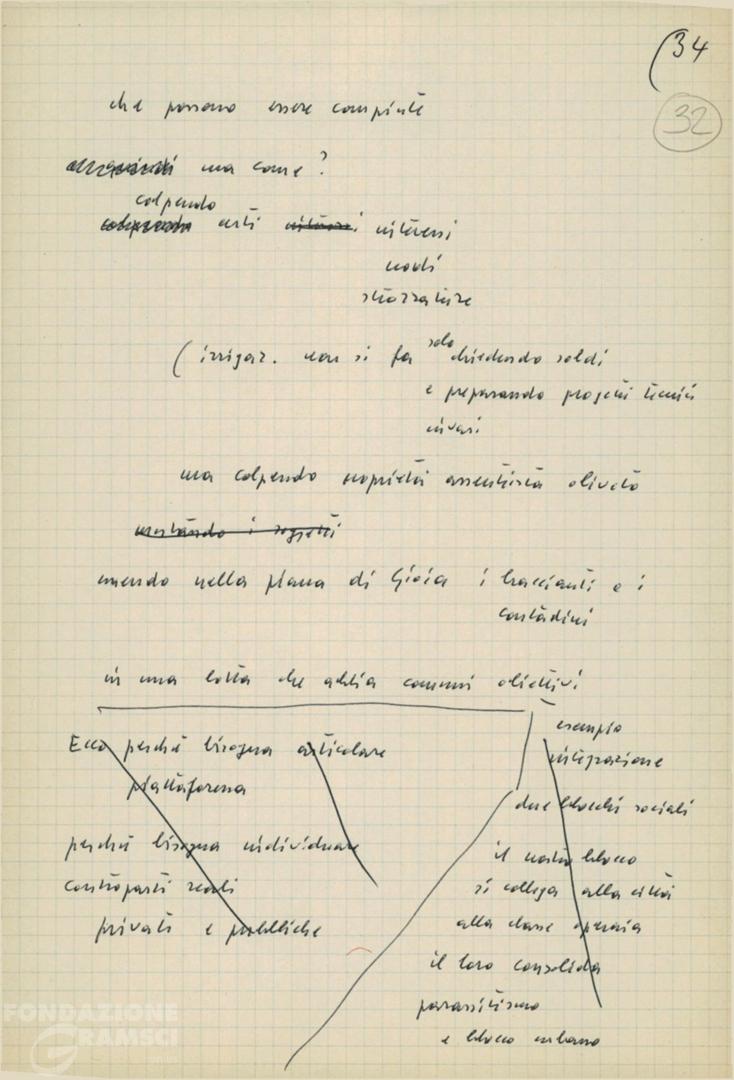 (34
32
che possono essere compiute
ma come?
colpendo
certi interessi
nodi
strozzature
(irrigaz. non si fa solo chiedendo soldi
e preparando progetti tecnici
invasi
ma colpendo proprietà assenteista oliveto
mostando i soggetti
unendo nella piana di Gioia i braccianti e i
contadini
in una lotta che abbia comuni obiettivi
Ecco perché bisogna articolare
piattaforma
perché bisogna individuare
controparti reali
private e pubbliche
esempio
integrazione
due blocchi sociali
il nostro blocco
si collega alla città
alla classe operaia
il loro consolida
parassitismo
e blocco urbano
FONDAZIONE
GRAMSCI